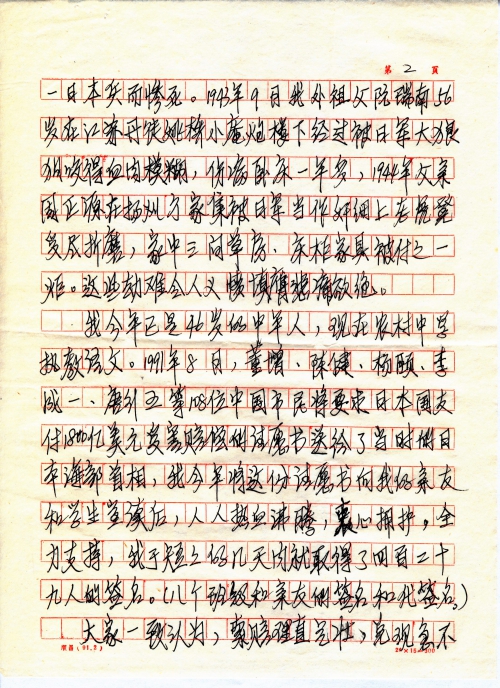 第 2 頁
一日本兵而惨死。1943年9月我外祖父阮瑞南56
岁在江苏丹徒姚桥小庵炮楼下经过被日军大狼
狗咬得血肉模糊，伤痛卧床一年多，1944年父亲
国正 在扬州方家集被日军当作奸细上老虎凳
受尽折磨，家中三间草房、床柜家具被付之一
炬。这些劫难令人义愤填膺悲痛欲绝。
我今年已是46岁的中年人，现在农村中学
执教语文。1991年8月，董增、陈健、杨颐、李
成一、唐 等108位中国市民将要求日本国支
付1800亿美元受害赔偿的请愿书送给了当时的日
本海部首相，我今年将这份请愿书向我的亲友
和学生宣读后，人人热血沸腾，衷心拥护，全
力支持，我于短短的几天内就取得了四百二十
九人的签名。（八个班级和亲友的签名和代签名。）
大家一致认为，索赔理直气壮，
20×15=300